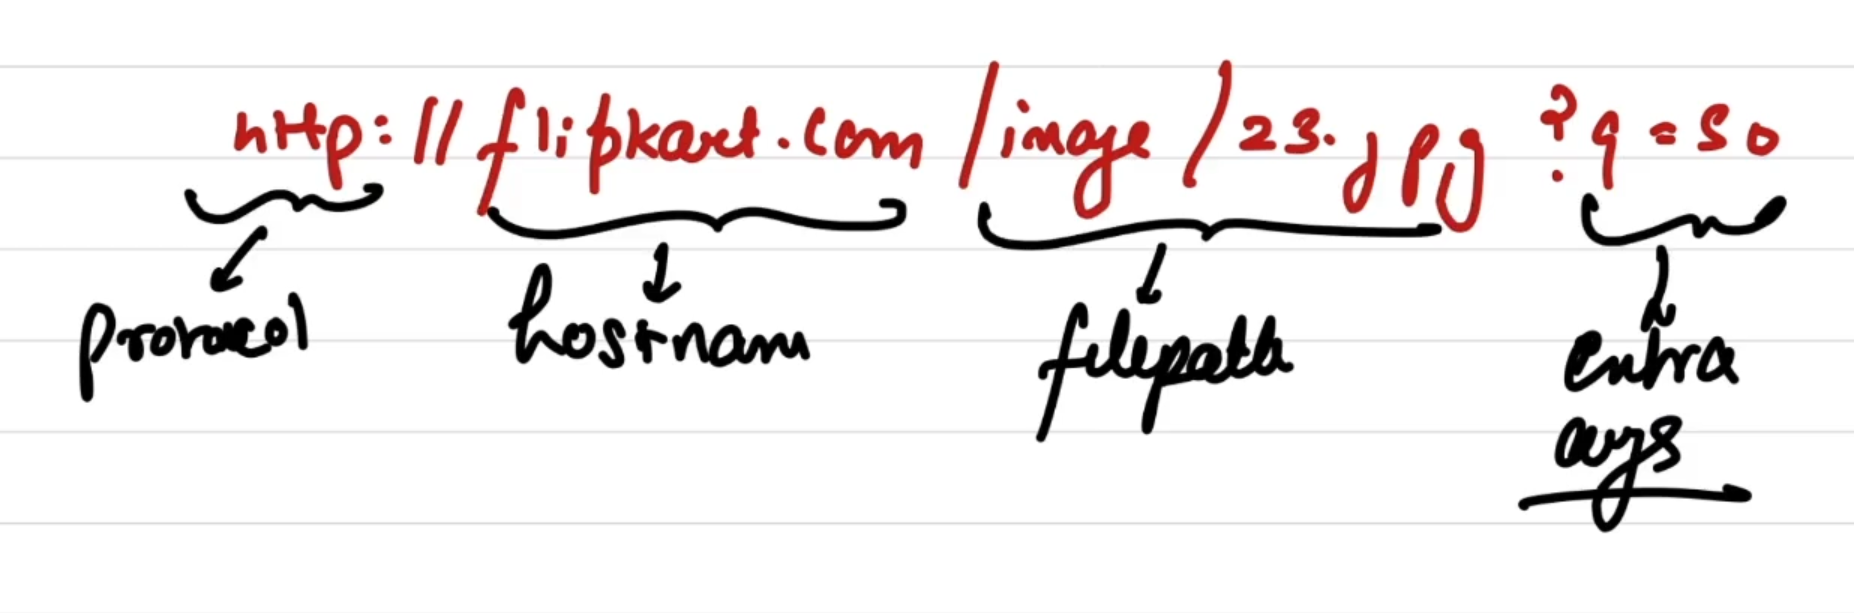 http://flipkart.com/image/23.jpg ?q=50
protocol hostnam filepath extra
args